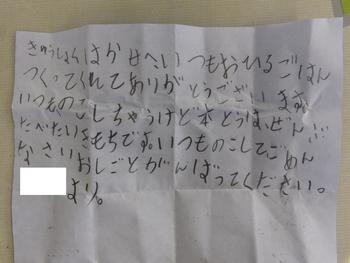 きゅうしょくはかせへいつもおひるごはん
つくってくれてありがとうございます
いつものこしちゃうけど本とうはぜんぶ
たべたいきもちです。いつものこしてごめん
なさいおしごとがんばってください。
より。